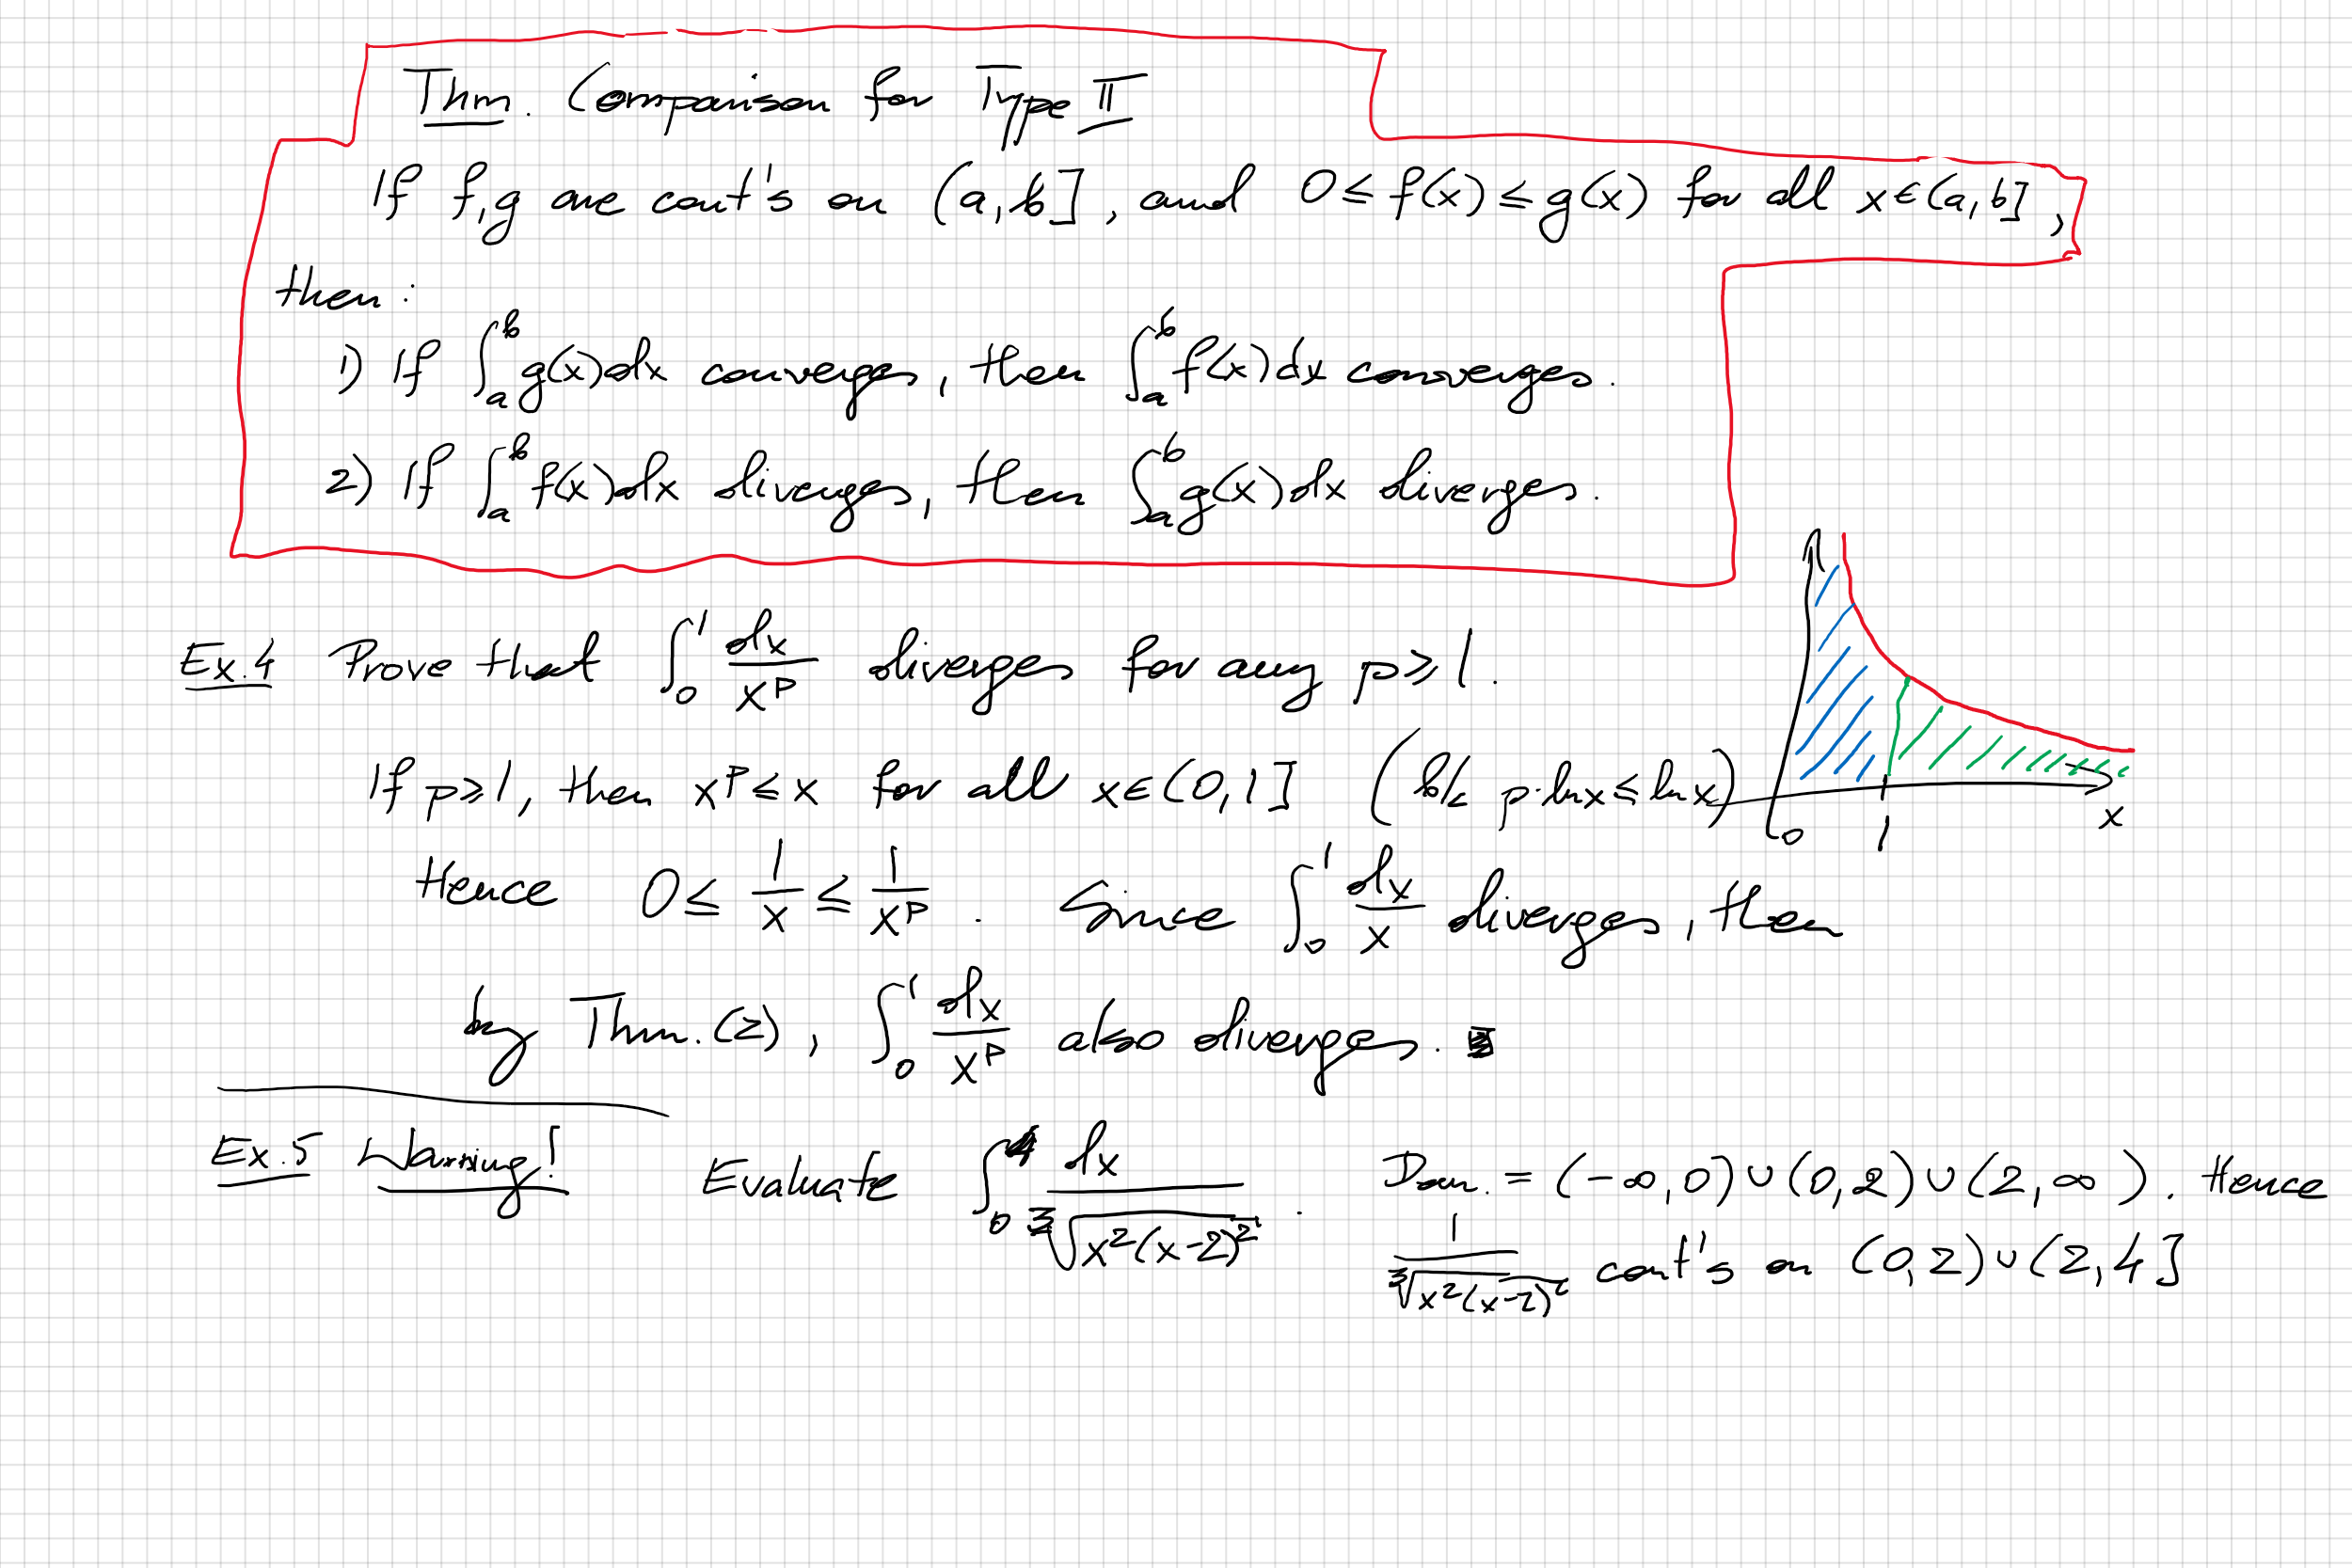 Thm. Comparison for Type II
If f,g are cont's on (a,b], and 0≤f(x)≤g(x) for all x∈(a,b],
then:
1) If ∫_a^b g(x)dx converges, then ∫_a^b f(x)dx converges.
2) If ∫_a^b f(x)dx diverges, then ∫_a^b g(x)dx diverges.
Ex.4 Prove that ∫_0^1 dx/x^p diverges for any p≥1.
If p≥1, then x^p≤x for all x∈(0,1] (b/c p·lnx≤lnx)
0 1 x
Hence 0≤ 1/x ≤ 1/x^p. Since ∫_0^1 dx/x diverges, then
by Thm.(2), ∫_0^1 dx/x^p also diverges.
Ex.5 Warning! Evaluate ∫_0^4 dx/∛(x²(x-2)²). Dom. = (-∞,0)∪(0,2)∪(2,∞). Hence
1/∛(x²(x-2)²) cont's on (0,2)∪(2,4]